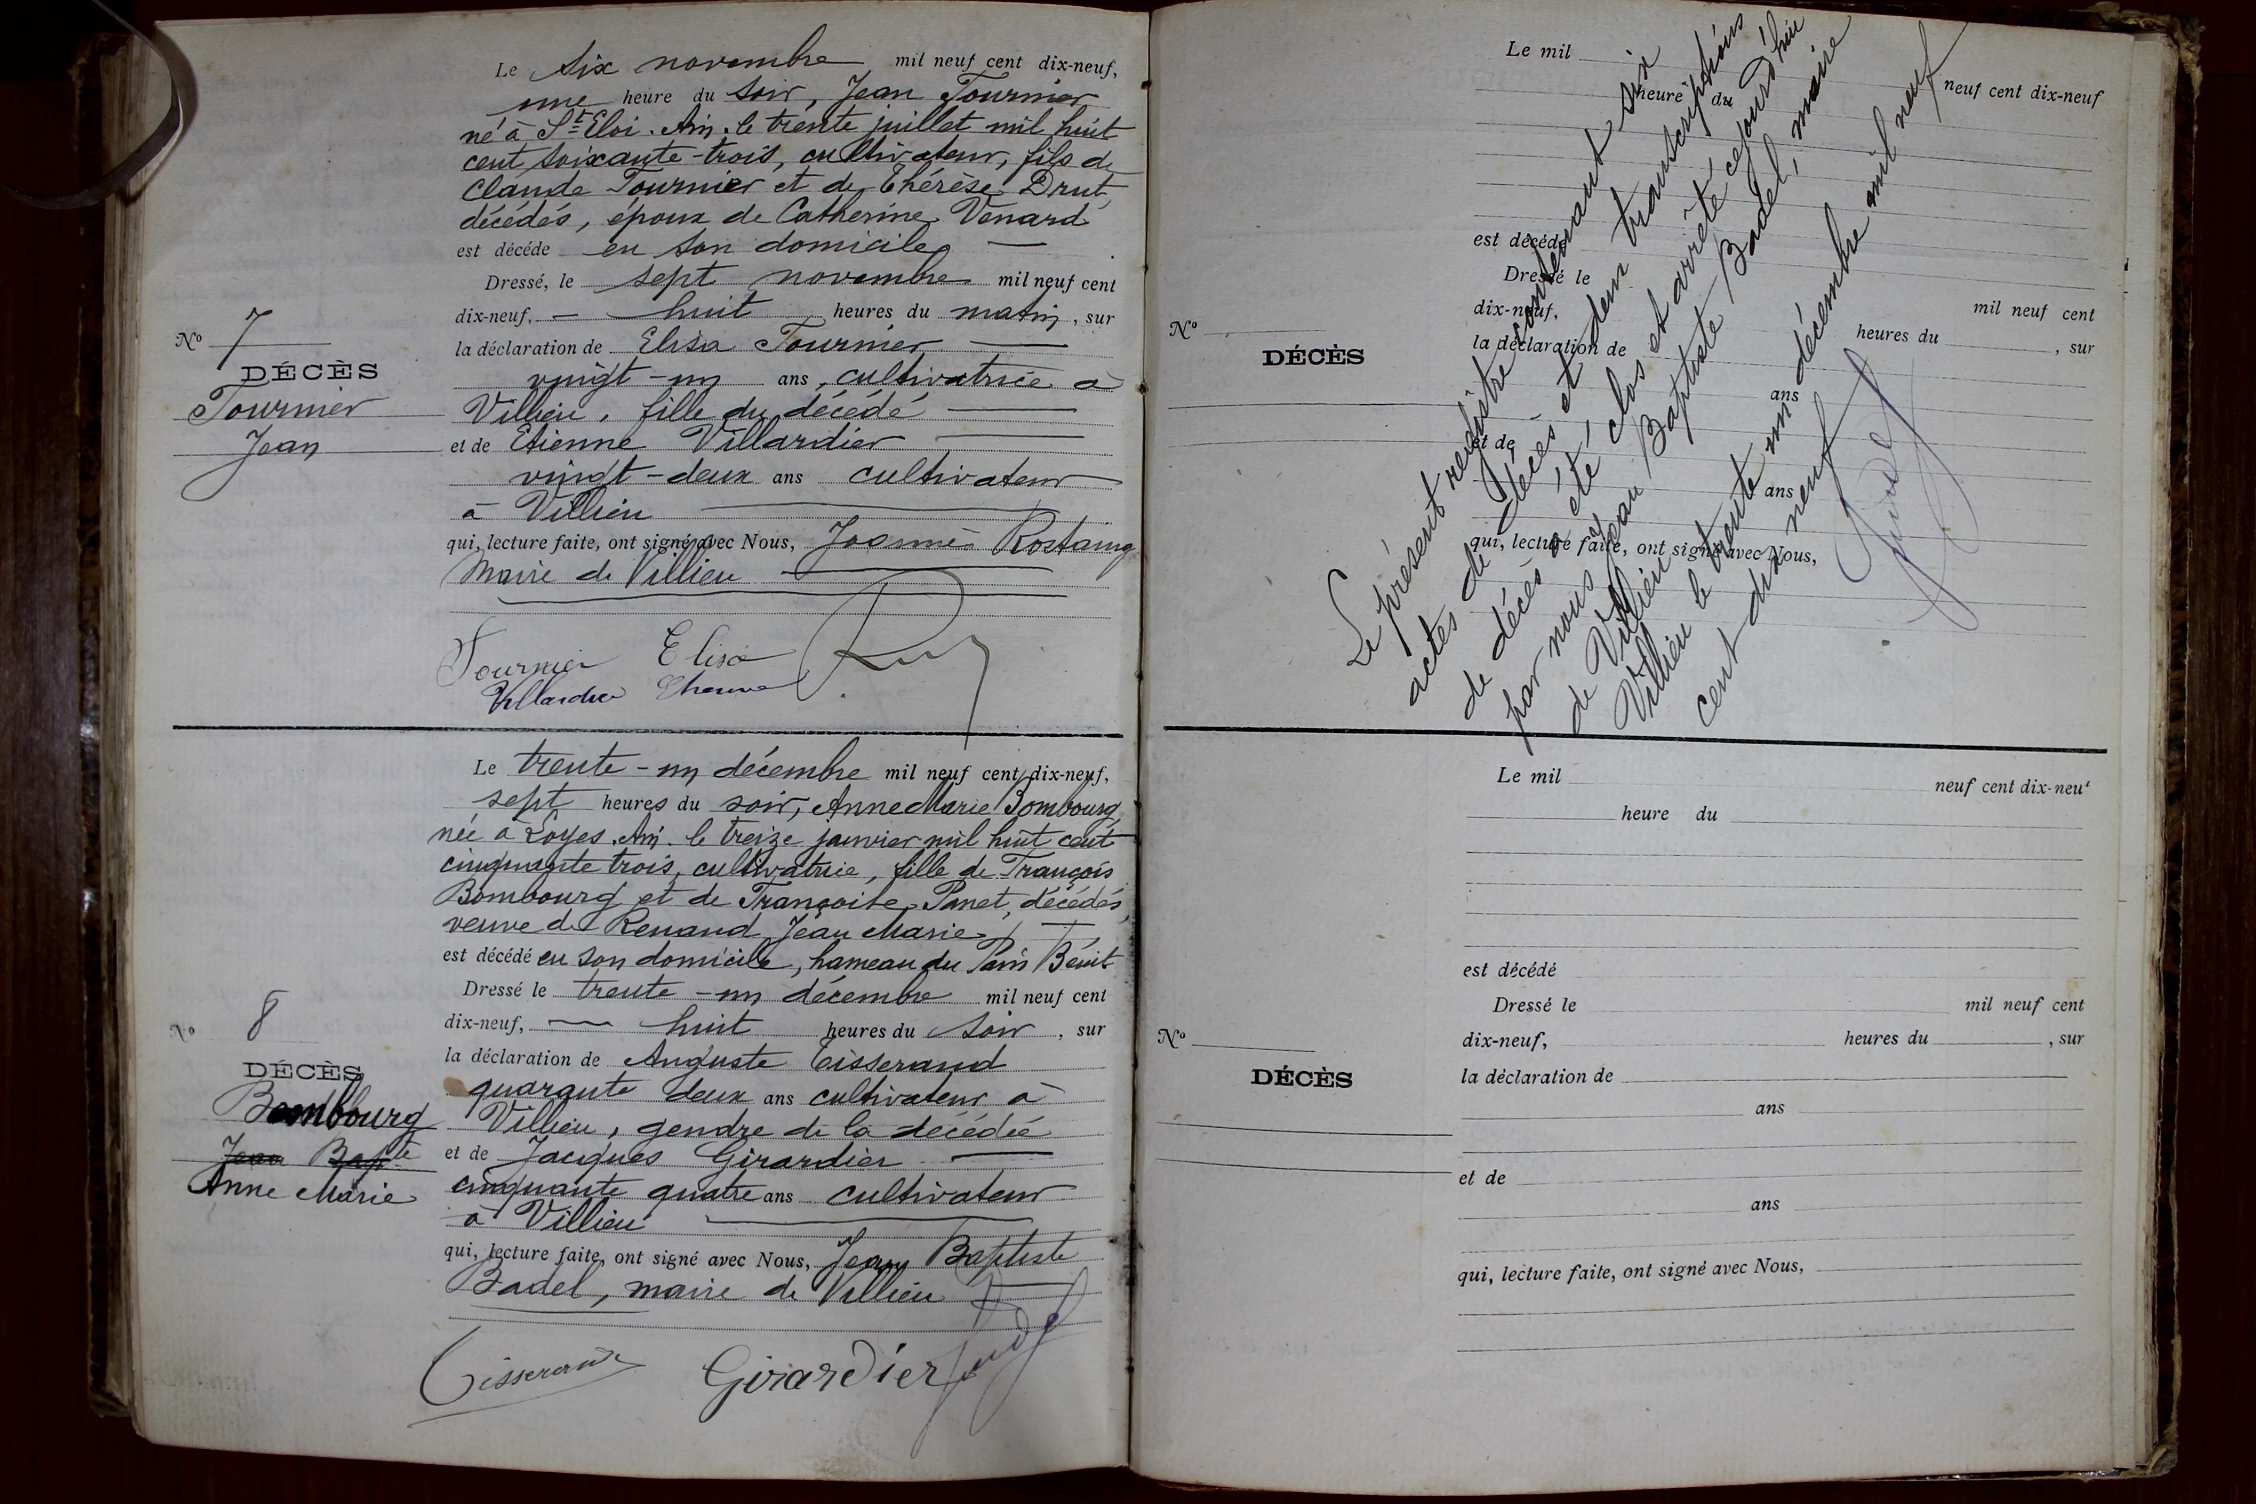 Le six novembre mil neuf cent dix-neuf,
une heure du soir, Jean Tournier
né à St Eloi. Ain. le trente juillet mil huit
cent soixante-trois, cultivateur, fils de
Claude Tournier et de Thérèse Drut,
décédés, époux de Catherine Venard
est décédé en son domicile
Dressé, le sept novembre mil neuf cent
dix-neuf, huit heures du matin, sur
la déclaration de Elisa Tournier
vingt-un ans, cultivatrice à
Villieu, fille du décédé
et de Etienne Villardier
vingt-deux ans cultivateur
à Villieu
qui, lecture faite, ont signé avec Nous, Joannès Rostaing
Maire de Villieu
Tournier Elisa
Villardier Etienne
No 7
DÉCÈS
Tournier
Jean
Le trente-un décembre mil neuf cent dix-neuf,
sept heures du soir, Anne Marie Bombourg,
née à Loyes. Ain. le treize janvier mil huit cent
cinquante trois, cultivatrice, fille de François
Bombourg et de Françoise Panet, décédés,
veuve de Renaud Jean Marie
est décédé en son domicile, hameau du Pain Bénit
Dressé le trente-un décembre mil neuf cent
dix-neuf, huit heures du soir, sur
la déclaration de Auguste Tisserand
quarante deux ans cultivateur à
Villieu, gendre de la décédée
et de Jacques Girardier
cinquante quatre ans cultivateur
à Villieu
qui, lecture faite, ont signé avec Nous, Jean Baptiste
Badel, maire de Villieu
Tisserand Girardier Badel
No 8
DÉCÈS
Bombourg
Jean Bapte
Anne Marie
Le mil neuf cent dix-neuf
heure du
est décédé
Dressé le mil neuf cent
dix-neuf, heures du , sur
la déclaration de
ans
et de
ans
qui, lecture faite, ont signé avec Nous,
No
DÉCÈS
Le présent registre contenant six
actes de décès et deux transcriptions
de décès a été clos et arrêté cejourd'hui
par nous Jean Baptiste Badel, maire
de Villieu
Villieu le trente un décembre mil neuf
cent dix neuf
Badel
Le mil neuf cent dix-neuf
heure du
est décédé
Dressé le mil neuf cent
dix-neuf, heures du , sur
la déclaration de
ans
et de
ans
qui, lecture faite, ont signé avec Nous,
No
DÉCÈS